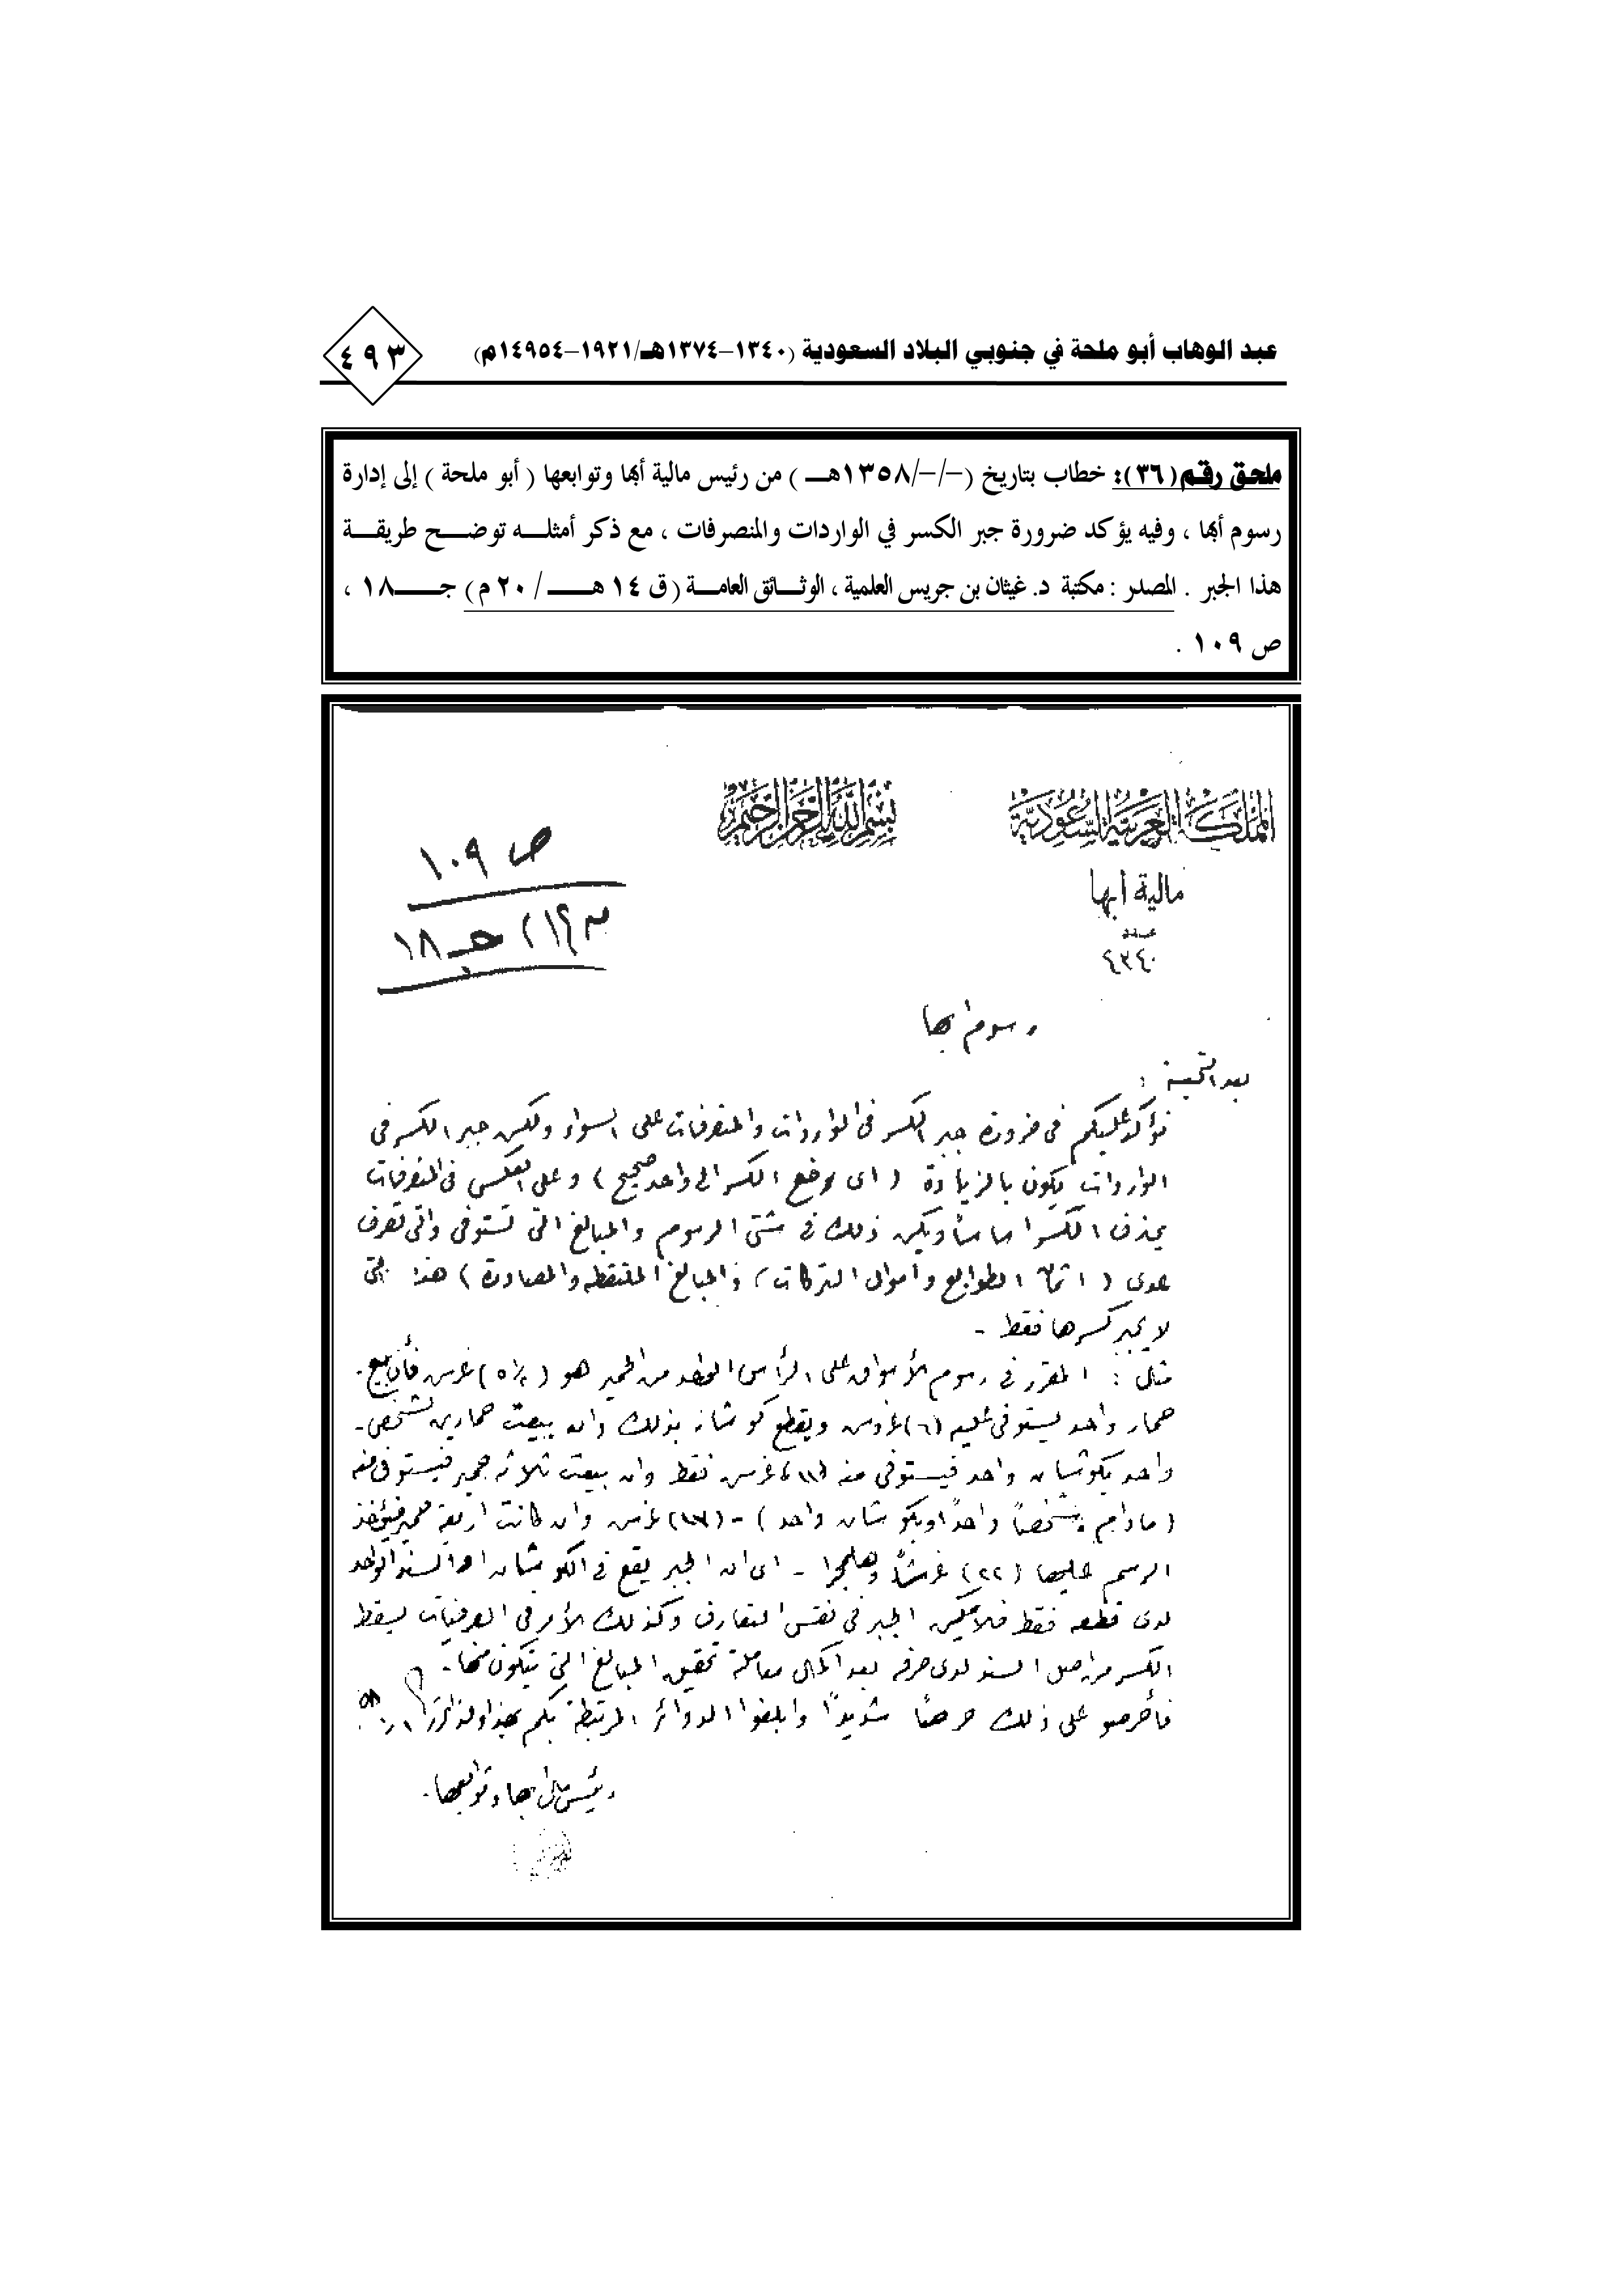 عبد الوهاب أبو ملحة في جنوبي البلاد السعودية (١٣٤٠-١٣٧٤هـ/١٩٢١-١٤٩٥٤م)
٤٩٣
ملحق رقم (٣٦): خطاب بتاريخ (-/-/١٣٥٨هـ) من رئيس مالية أبها وتوابعها ( أبو ملحة ) إلى إدارة
رسوم أبها ، وفيه يؤكد ضرورة جبر الكسر في الواردات والمنصرفات ، مع ذكر أمثله توضح طريقة
هذا الجبر . المصدر : مكتبة د. غيثان بن جريس العلمية ، الوثائق العامة (ق ١٤ هـ / ٢٠ م) جـ ١٨ ،
ص ١٠٩ .
المملكة العربية السعودية
بسم الله الرحمن الرحيم
ص ١٠٩
جـ ١٨
مالية أبها
عدد
٤٣٤٠
رسوم ابها
بعد التحية :
نؤكد عليكم في ضرورة جبر الكسر في الواردات والمنصرفات على السواء ولكن جبر الكسر في
الواردات يكون بالزيادة ( اى يرفع الكسر الى واحد صحيح ) وعلى العكس في المنصرفات
يحذف الكسر ويكن ذلك في شتى الرسوم والمبالغ التى تستوفى والتى تصرف
عدى ( اثمان الطوابع وأموال التركات ) والمبالغ الملتقطه والمصادرة ) هذه التى
لا يجبر كسرها فقط -
مثال : المقرر في رسوم الأسواق على الرأس الواحد من الحمير هو ( ٥ ١/٢ ) غرس فأن بيع
حمار واحد يستوفى عليه (٦) غروس ويقطع كوشان بذلك وان بيعت حمارين لشخص
واحد بكوشان واحد فيستوفى منه (١١) غرس فقط وان بيعت ثلاثه حمير فيستوفى منه
( مادام شخصاً واحداً وبكوشان واحد ) - (١٧) غرس وان كانت اربعة حمير فيؤخذ
الرسم عليها (٢٢) غرشاً وهلمجرا - اى ان الجبر يقع في الكوشان او السند الواحد
لدى قطعه فقط فلا يمكن الجبر في نفس التعارف وكذلك الأمر في الصرفيات يسقط
الكسر من اصل السند لدى صرفه بعد اكمال معاملة تحقيق المبالغ التي يتكون منها .
فأحرصو على ذلك حرصاً شديداً وابلغوا الدوائر المرتبطة بكم بهذا
رئيس مالية ابها وتوابعها